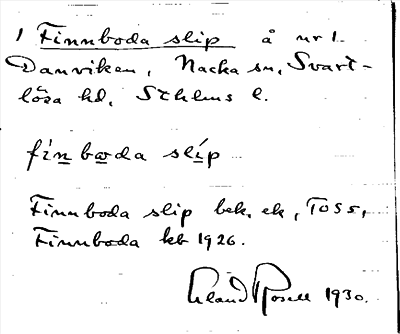 1 Finnboda slip å nr 1.
Danviken, Nacka sn, Svart-
lösa hd, Sthlms l.
fi̇́n boda slíp
Finnboda slip bek. ek, TOSS,
Finnboda kb 1926.
Erland Rosell 1930.